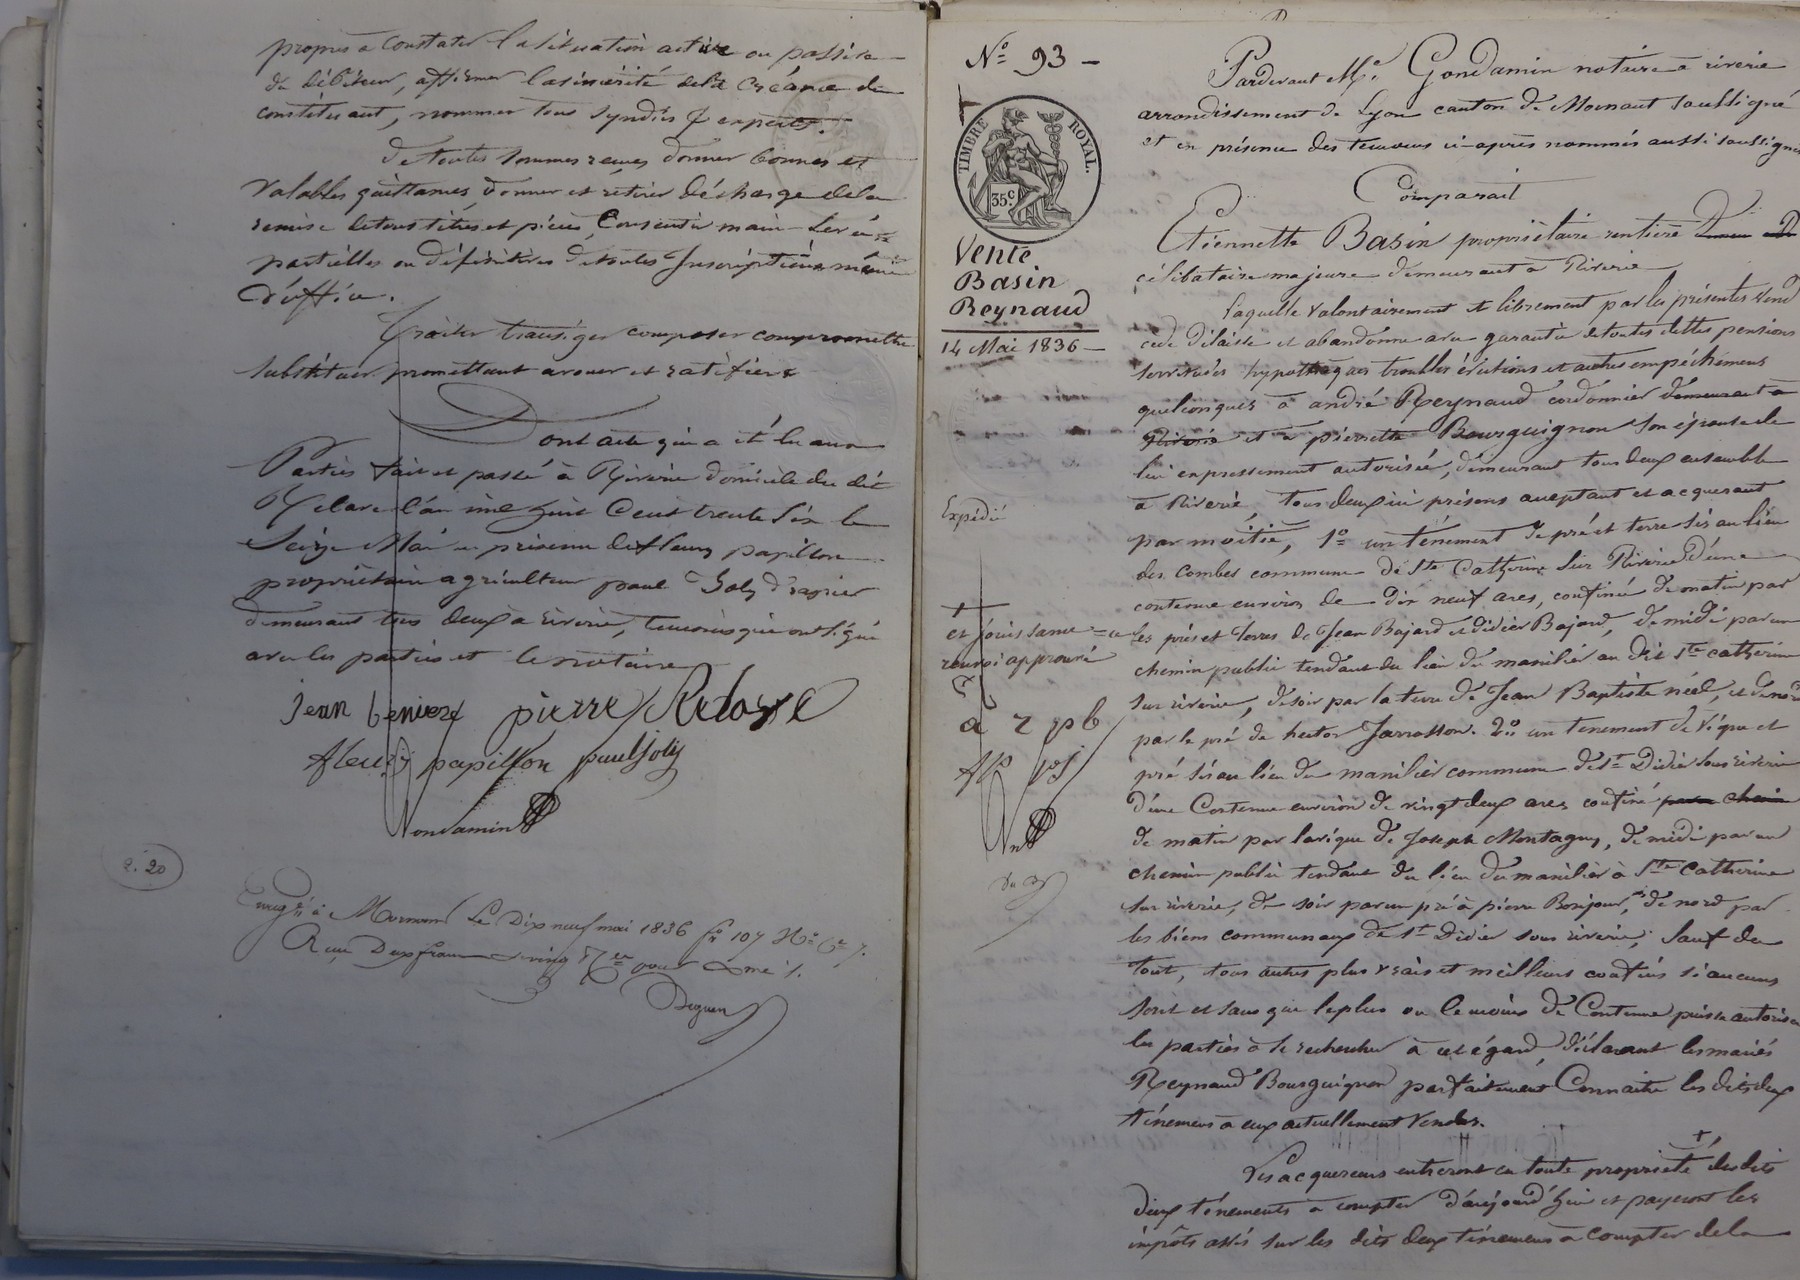 propres à constater la situation active ou passive
du débiteur, affirmer la sincérité de la Créance du
constituant, nommer tous syndics & experts.
de toutes sommes reçues donner bonnes et
valables quittances, donner et retirer décharge de la
remise de tous titres et pièces, Consentir main-levées
partielles ou définitives de toutes Inscriptions même
d'office.
Traiter transiger composer compromettre
substituer promettant avouer et ratifier
Dont acte qui a été lu aux
Parties fait et passé à Riverie domicile du dit
Relave l'an mil huit Cent trente six le
Seize Mai en présence de fleury papillon
propriétaire agriculteur paul Joly
demeurant tous deux à riverie, témoins qui ont signé
avec les parties et le notaire
jean pierre
fleury papillon paul joly
Gondamin
2. 20
Enregé à Mornant Le Dix neuf mai 1836 fo 107 Ro Ce 7.
Reçu Deux francs vingt Cer pour
N° 93
TIMBRE ROYAL.
35c
Vente
Basin
Reynaud
14 Mai 1836
Expédié
et jouissance
renvoi approuvé
a r p b
fp pj
Pardevant Me Gondamin notaire à riverie
arrondissement de Lyon canton de Mornant soussigné
et en présence des témoins ci-après nommés aussi soussignés
Comparait
Etiennette Basin propriétaire rentière
célibataire majeure demeurant à Riverie
Laquelle volontairement et librement par les présentes vend
cède délaisse et abandonne avec garantie de toutes dettes pensions
servitudes hypothèques troubles évictions et autres empêchemens
quelconques à andré Reynaud cordonnier demeurant à
Riverie et à pierrette Bourguignon son épouse de
lui expressement autorisée, demeurant tous deux ensemble
à Riverie, tous deux ici présens acceptant et acquerant
par moitié, 1° un ténement de pré et terre sis au lieu
des Combes commune de Ste Catherine sur Riverie d'une
contenue environ de dix neuf ares, confiné de matin par
les prés et terres de Jean Bajard et didier Bajard, de midi par un
chemin public tendant du lieu du manilier au dit Ste Catherine
sur riverie, de soir par la terre de Jean Baptiste néel, et de nord
par le pré de hector Jarrosson. 2° un tenement de vigne et
pré sis au lieu du manilier commune de St Didier sous riverie
d'une Contenue environ de vingt deux ares confiné par un chemin
de matin par la vigne de Joseph Montagny, de midi par un
chemin public tendant du lieu du manilier à Ste Catherine
sur riverie, de soir par un pré à pierre Bonjour, de nord par
les biens communaux de St Didier sous riverie; Sauf du
tout, tous autres plus vrais et meilleurs confins si aucuns
sont et sans que le plus ou le moins de Contenue puisse autoriser
les parties à se rechercher à cet égard, déclarant les mariés
Reynaud Bourguignon parfaitement Connaitre les dits deux
ténemens à eux actuellement vendus.
Les acquereurs entreront en toute propriété + des dits
deux ténements à compter d'aujourd'hui et payeront les
impôts assis sur les dits deux ténemens à compter de la